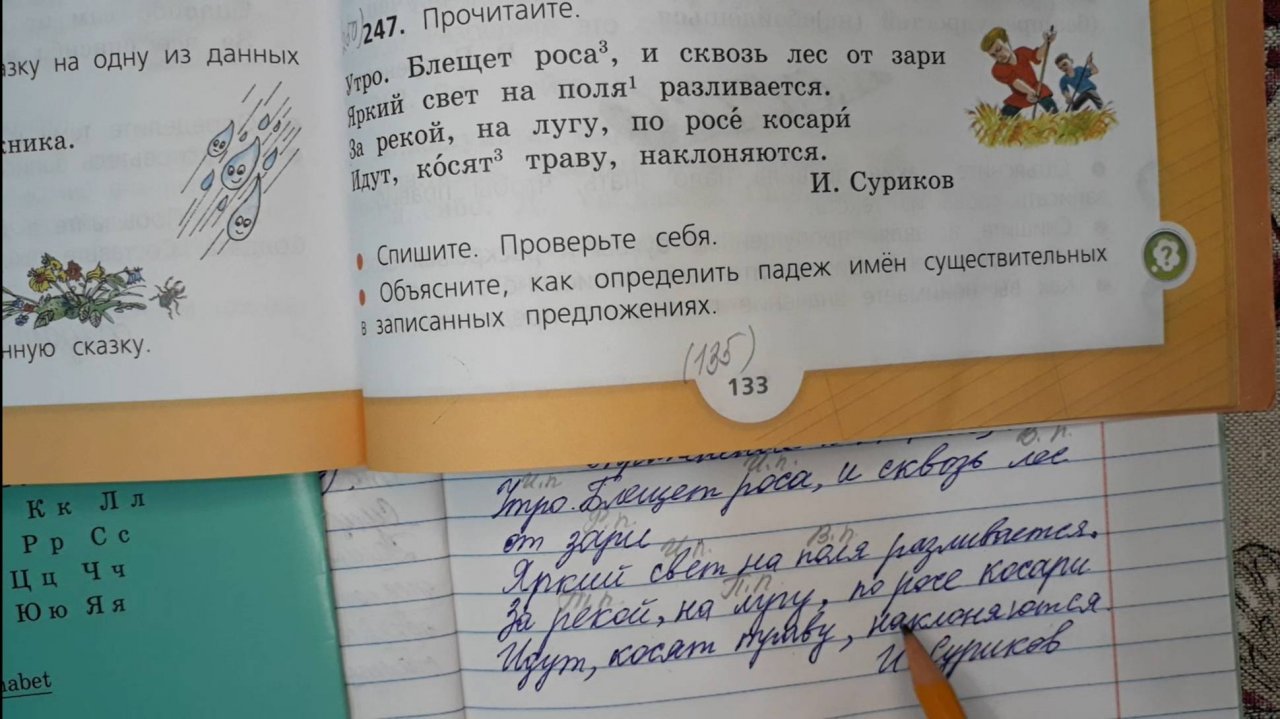 азку на одну из данных
кника.
нную сказку.
247. Прочитайте.
Утро. Блещет роса³, и сквозь лес от зари
Яркий свет на поля¹ разливается.
За рекой, на лугу, по росé косарú
Идут, кóсят³ траву, наклоняются.
И. Суриков
• Спишите. Проверьте себя.
• Объясните, как определить падеж имён существительных
в записанных предложениях.
(135)
133
Кк Лл
Рр Сс
Цц Чч
Юю Яя
habet
И.п. И.п. В.п.
Утро. Блещет роса, и сквозь лес
Р.п.
от зари
И.п. В.п.
Яркий свет на поля разливается.
Т.п. П.п.
За рекой, на лугу, по росе косари
Идут, косят траву, наклоняются.
И. Суриков